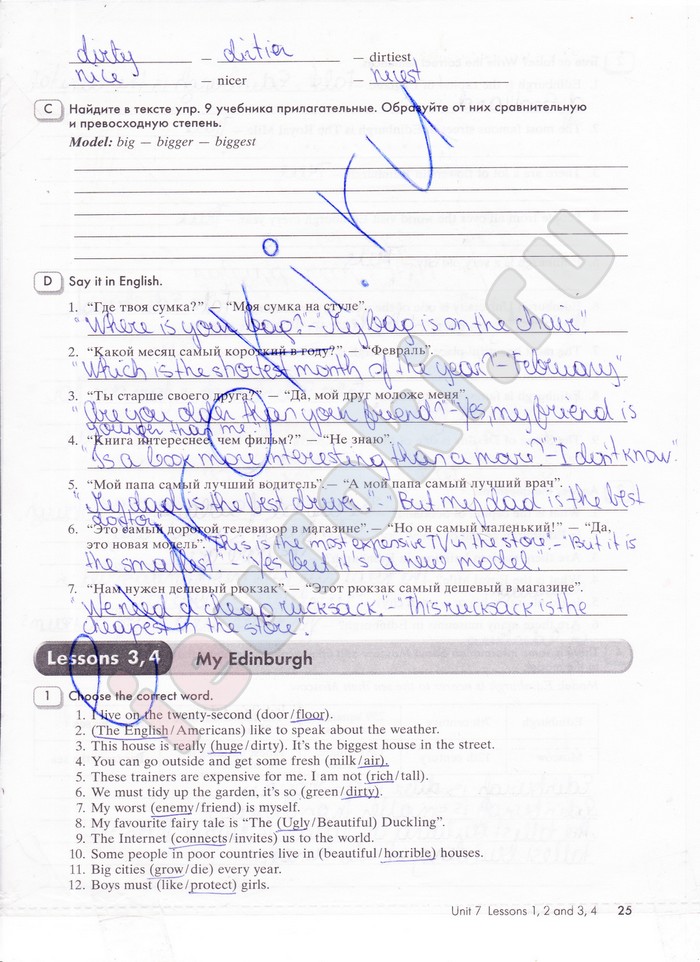 dirty – dirtier – dirtiest
nice – nicer – nicest
C Найдите в тексте упр. 9 учебника прилагательные. Образуйте от них сравнительную
и превосходную степень.
Model: big — bigger — biggest
D Say it in English.
1. “Где твоя сумка?” — “Моя сумка на стуле”.
"Where is your bag?" - "My bag is on the chair."
2. “Какой месяц самый короткий в году?” — “Февраль”.
"Which is the shortest month of the year?" - "February".
3. “Ты старше своего друга?” — “Да, мой друг моложе меня”.
"Are you older than your friend?" - "Yes my friend is
younger than me."
4. “Книга интереснее, чем фильм?” — “Не знаю”.
"Is a book more interesting than a move?" - "I don't know."
5. “Мой папа самый лучший водитель”. — “А мой папа самый лучший врач”.
"My dad is the best driver." - "But my dad is the best
doctor"
6. “Это самый дорогой телевизор в магазине”. — “Но он самый маленький!” — “Да,
это новая модель”. "This is the most expensive TV in the store." - "But it is
the smallest." - "Yes, but it's a new model."
7. “Нам нужен дешевый рюкзак”. — “Этот рюкзак самый дешевый в магазине”.
"We need a cheap rucksack." - "This rucksack is the
cheapest in the store".
Lessons 3, 4 My Edinburgh
1 Choose the correct word.
1. I live on the twenty-second (door/floor).
2. (The English/Americans) like to speak about the weather.
3. This house is really (huge/dirty). It’s the biggest house in the street.
4. You can go outside and get some fresh (milk/air).
5. These trainers are expensive for me. I am not (rich/tall).
6. We must tidy up the garden, it’s so (green/dirty).
7. My worst (enemy/friend) is myself.
8. My favourite fairy tale is “The (Ugly/Beautiful) Duckling”.
9. The Internet (connects/invites) us to the world.
10. Some people in poor countries live in (beautiful/horrible) houses.
11. Big cities (grow/die) every year.
12. Boys must (like/protect) girls.
Unit 7 Lessons 1, 2 and 3, 4 25